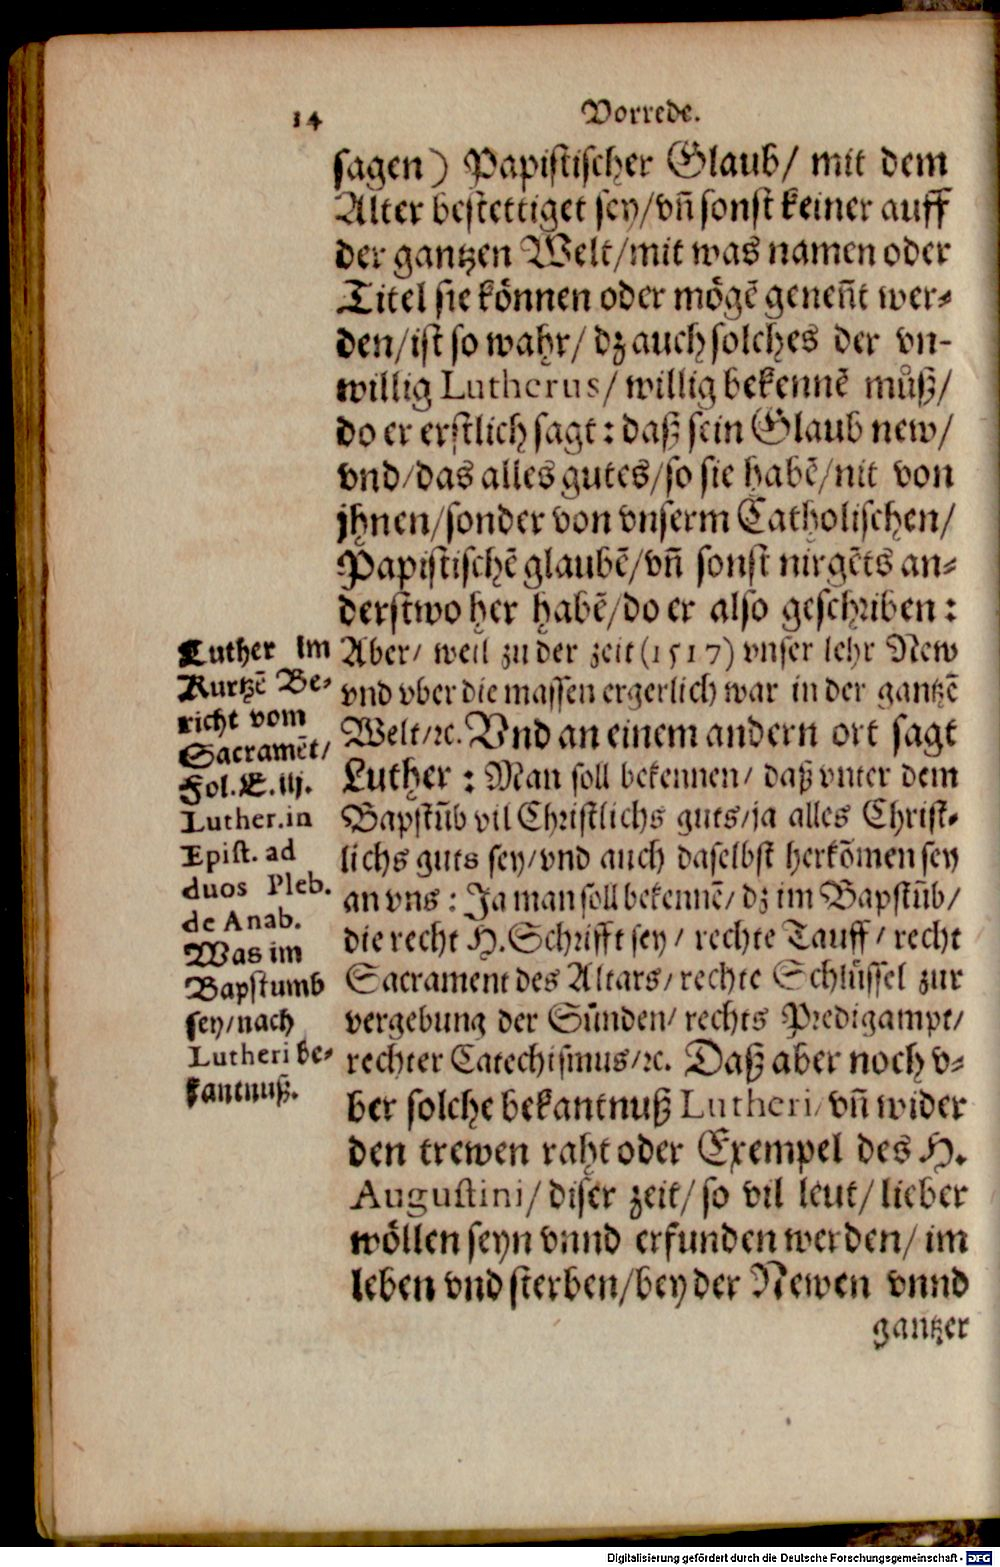 14 Vorrede.
sagen) Papistischer Glaub/ mit dem
Alter bestettiget sey/vn̄ sonst keiner auff
der gantzen Welt/mit was namen oder
Titel sie können oder mögē genen̄t wer⸗
den/ist so wahr/ dz auch solches der vn-
willig Lutherus/ willig bekennē můß/
do er erstlich sagt: daß sein Glaub new/
vnd/das alles gutes/so sie habē/nit von
jhnen/sonder von vnserm Catholischen/
Papistischē glaubē/vn̄ sonst nirgēts an⸗
derstwo her habē/do er also geschriben:
Aber/ weil zu der zeit (1517) vnser lehr New
vnd vber die massen ergerlich war in der gantzē
Welt/ꝛc. Vnd an einem andern ort sagt
Luther: Man soll bekennen/ daß vnter dem
Bapstūb vil Christlichs guts/ja alles Christ⸗
lichs guts sey/vnd auch daselbst herkōmen sey
an vns: Ja man soll bekennē/ dz im Bapstūb/
die recht H. Schrifft sey/ rechte Tauff/ recht
Sacrament des Altars/ rechte Schlüssel zur
vergebung der Sünden/ rechts Predigampt/
rechter Catechismus/ꝛc. Daß aber noch v⸗
ber solche bekantnuß Lutheri/vn̄ wider
den trewen raht oder Exempel des H.
Augustini/ diser zeit/ so vil leut/ lieber
wöllen seyn vnnd erfunden werden/ im
leben vnd sterben/bey der Newen vnnd
gantzer
Luther im
Kurtzē Be⸗
richt vom
Sacramēt/
Fol. E. iij.
Luther. in
Epist. ad
duos Pleb.
de Anab.
Was im
Bapstumb
sey/nach
Lutheri be⸗
kantnuß.
Digitalisierung gefördert durch die Deutsche Forschungsgemeinschaft - DFG